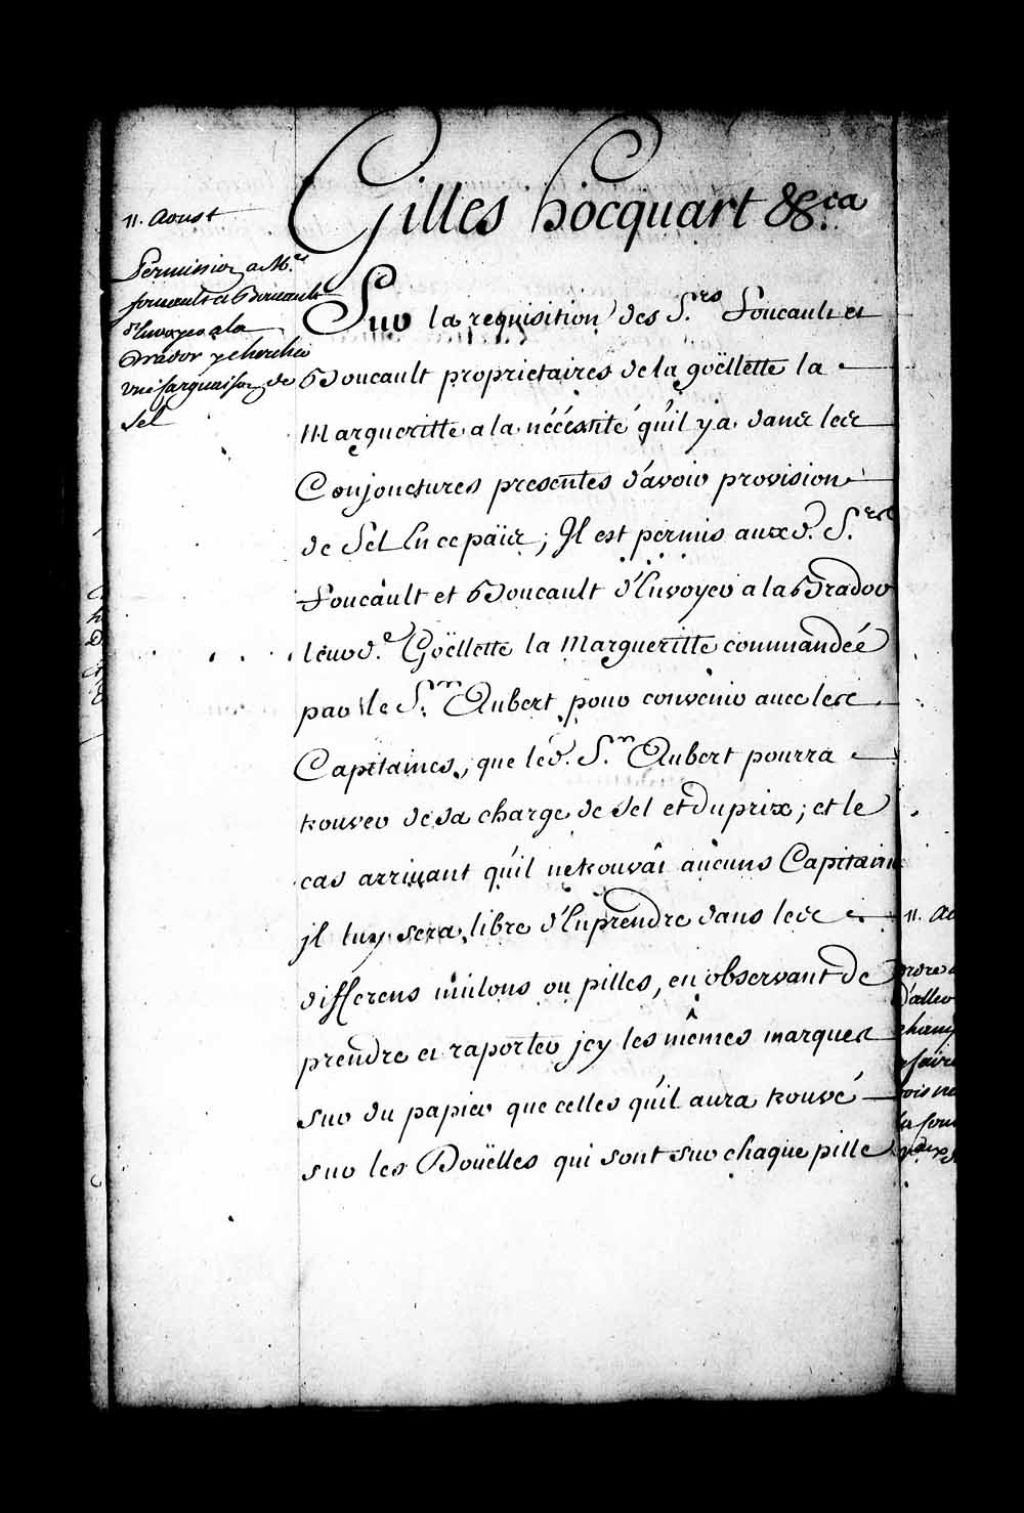 Gilles hocquart &c.a
11. Aoust
Permission a Mrs
foucault et Boucault
d'Envoyer a la
Brador y chercher
une Cargaison de
Sel
Sur la requisition des S.rs Foucault et
Boucault proprietaires de la goëllette la
Margueritte a la nécéssité qu'il y a dans les
Conjonctures presentes d'avoir provision
de Sel En ce païis; Il est permis aux d. S.rs
Foucault et Boucault d'Envoyer a la Brador
leur d.e Goëllette la Margueritte commandée
par le S.r Aubert pour convenir avec les
Capitaines, que led. S.r Aubert pourra
trouver de sa charge de Sel et du prix; et le
cas arrivant qu'il ne trouvât aucuns Capitaines
jl luy sera libre d'En prendre dans les
differens mulons ou pilles, en observant de
prendre et raporter jcy les mêmes marques
sur du papier que celles qu'il aura trouvé
sur les Doüelles qui sont sur chaque pille
11. Ao
ordre a
d'aller
faire